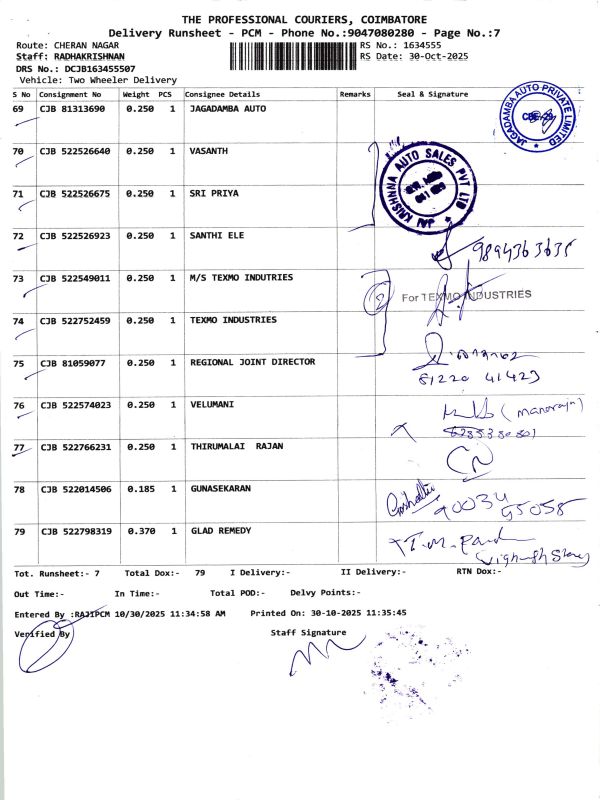 THE PROFESSIONAL COURIERS, COIMBATORE
Delivery Runsheet - PCM - Phone No.:9047080280 - Page No.:7
Route: CHERAN NAGAR
RS No.: 1634555
Staff: RADHAKRISHNAN
RS Date: 30-Oct-2025
DRS No.: DCJB163455507
Vehicle: Two Wheeler Delivery
S No Consignment No Weight PCS Consignee Details Remarks Seal & Signature
69 CJB 81313690 0.250 1 JAGADAMBA AUTO
JAGADAMBA AUTO PRIVATE LIMITED
70 CJB 522526640 0.250 1 VASANTH
JAI KRISHNNA AUTO SALES PVT LTD
71 CJB 522526675 0.250 1 SRI PRIYA
72 CJB 522526923 0.250 1 SANTHI ELE
9894363635
73 CJB 522549011 0.250 1 M/S TEXMO INDUTRIES
2 For TEXMO INDUSTRIES
74 CJB 522752459 0.250 1 TEXMO INDUSTRIES
75 CJB 81059077 0.250 1 REGIONAL JOINT DIRECTOR
81220 41423
76 CJB 522574023 0.250 1 VELUMANI
(manoraja)
77 CJB 522766231 0.250 1 THIRUMALAI RAJAN
78 CJB 522014506 0.185 1 GUNASEKARAN
90034 95058
79 CJB 522798319 0.370 1 GLAD REMEDY
Tot. Runsheet:- 7 Total Dox:- 79 I Delivery:- II Delivery:- RTN Dox:-
Out Time:- In Time:- Total POD:- Delvy Points:-
Entered By :RAJIPCM 10/30/2025 11:34:58 AM Printed On: 30-10-2025 11:35:45
Verified By Staff Signature